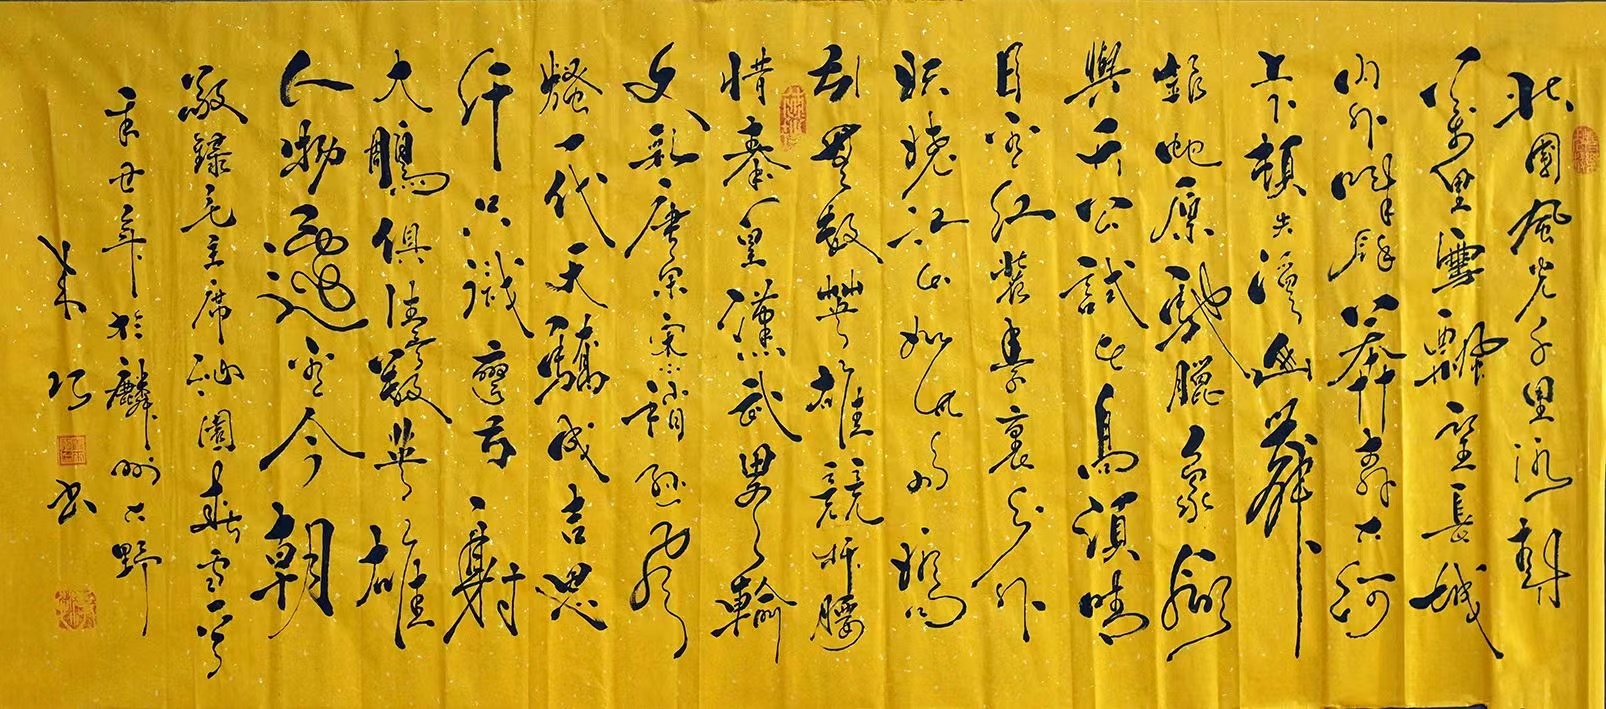 北國風光千里冰封
萬里雪飄望長城
內外唯餘莽莽大河
上下頓失滔滔山舞
銀蛇原馳臘象欲
與天公試比高須晴
日看紅裝素裹分外
妖嬈江山如此多嬌
引無數英雄競折腰
惜秦皇漢武略輸
文采唐宗宋祖稍遜風
騷一代天驕成吉思
汗只識彎弓射
大鵰俱往矣數英雄
人物還看今朝
敬錄毛主席沁園春雪一首
辛丑年於麟州大野
书